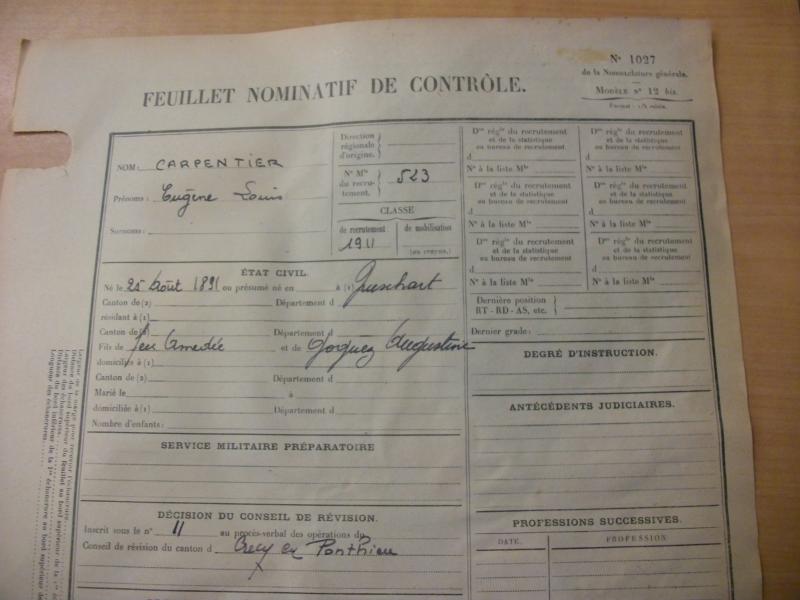 Nº 1027
de la Nomenclature générale.
MODÈLE Nº 12 bis
FEUILLET NOMINATIF DE CONTRÔLE.
NOM: CARPENTIER
Prénoms: Eugène Louis
Surnoms:
Direction régionale d'origine.
Nº Mle du recrutement. 523
CLASSE
de recrutement 1911
de mobilisation
(au crayon.)
Don régle du recrutement
et de la statistique
ou bureau de recrutement
d
Nº à la liste Mle
Don régle du recrutement
et de la statistique
ou bureau de recrutement
d
Nº à la liste Mle
Don régle du recrutement
et de la statistique
ou bureau de recrutement
d
Nº à la liste Mle
Don régle du recrutement
et de la statistique
ou bureau de recrutement
d
Nº à la liste Mle
Don régle du recrutement
et de la statistique
ou bureau de recrutement
d
Nº à la liste Mle
Don régle du recrutement
et de la statistique
ou bureau de recrutement
d
Nº à la liste Mle
Dernière position
RT - RD - AS, etc.
Dernier grade:
ÉTAT CIVIL.
Né le 25 Août 1891 ou présumé né en à (1) Gueschart
Canton de (2) Département d
résidant à (1)
Canton de (2) Département d
Fils de feu Amedée et de Gorguez Augustine
domiciliés à (1)
Canton de (2) Département d
Marié le à
domiciliée à (1) Département d
Nombre d'enfants:
SERVICE MILITAIRE PRÉPARATOIRE
DÉCISION DU CONSEIL DE RÉVISION.
Inscrit sous le nº 11 au procès-verbal des opérations du
Conseil de révision du canton d Crécy en Ponthieu
DEGRÉ D'INSTRUCTION.
ANTÉCÉDENTS JUDICIAIRES.
PROFESSIONS SUCCESSIVES.
DATE. PROFESSION